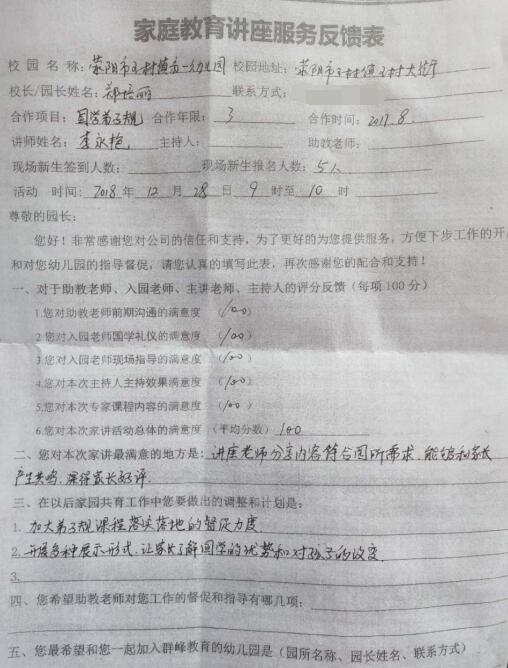 家庭教育讲座服务反馈表
校园名称:荥阳市王村镇第一幼儿园 校园地址:荥阳市王村镇王村大街
校长/园长姓名:郑培丽 联系方式:
合作项目:国学弟子规 合作年限:3 合作时间:2017.8
讲师姓名:李永艳 主持人: 助教老师:
现场新生签到人数: 现场新生报名人数:5人
活动 时间:2018年12月28日9时至10时
尊敬的园长:
您好!非常感谢您对公司的信任和支持,为了更好的为您提供服务,方便下步工作的开
和对您幼儿园的指导督促,请您认真的填写此表,再次感谢您的配合和支持!
一、对于助教老师、入园老师、主讲老师、主持人的评分反馈(每项100分)
1.您对助教老师前期沟通的满意度 (100)
2.您对入园老师国学礼仪的满意度 (100)
3.您对入园老师现场指导的满意度 (100)
4.您对本次主持人主持效果满意度 (100)
5.您对本次专家课程内容的满意度 (100)
6.您对本次家讲活动总体的满意度 (平均分数)100
二、您对本次家讲最满意的地方是:讲座老师分享内容符合园所需求,能够和家长
产生共鸣,深得家长好评.
三、在以后家园共育工作中您要做出的调整和计划是:
1.加大弟子规课程落实落地的督促力度
2.开展多种展示形式,让家长了解国学的优势和对孩子的改变.
3.
四、您希望助教老师对您工作的督促和指导有哪几项:
五、您最希望和您一起加入群峰教育的幼儿园是(园所名称、园长姓名、联系方式)